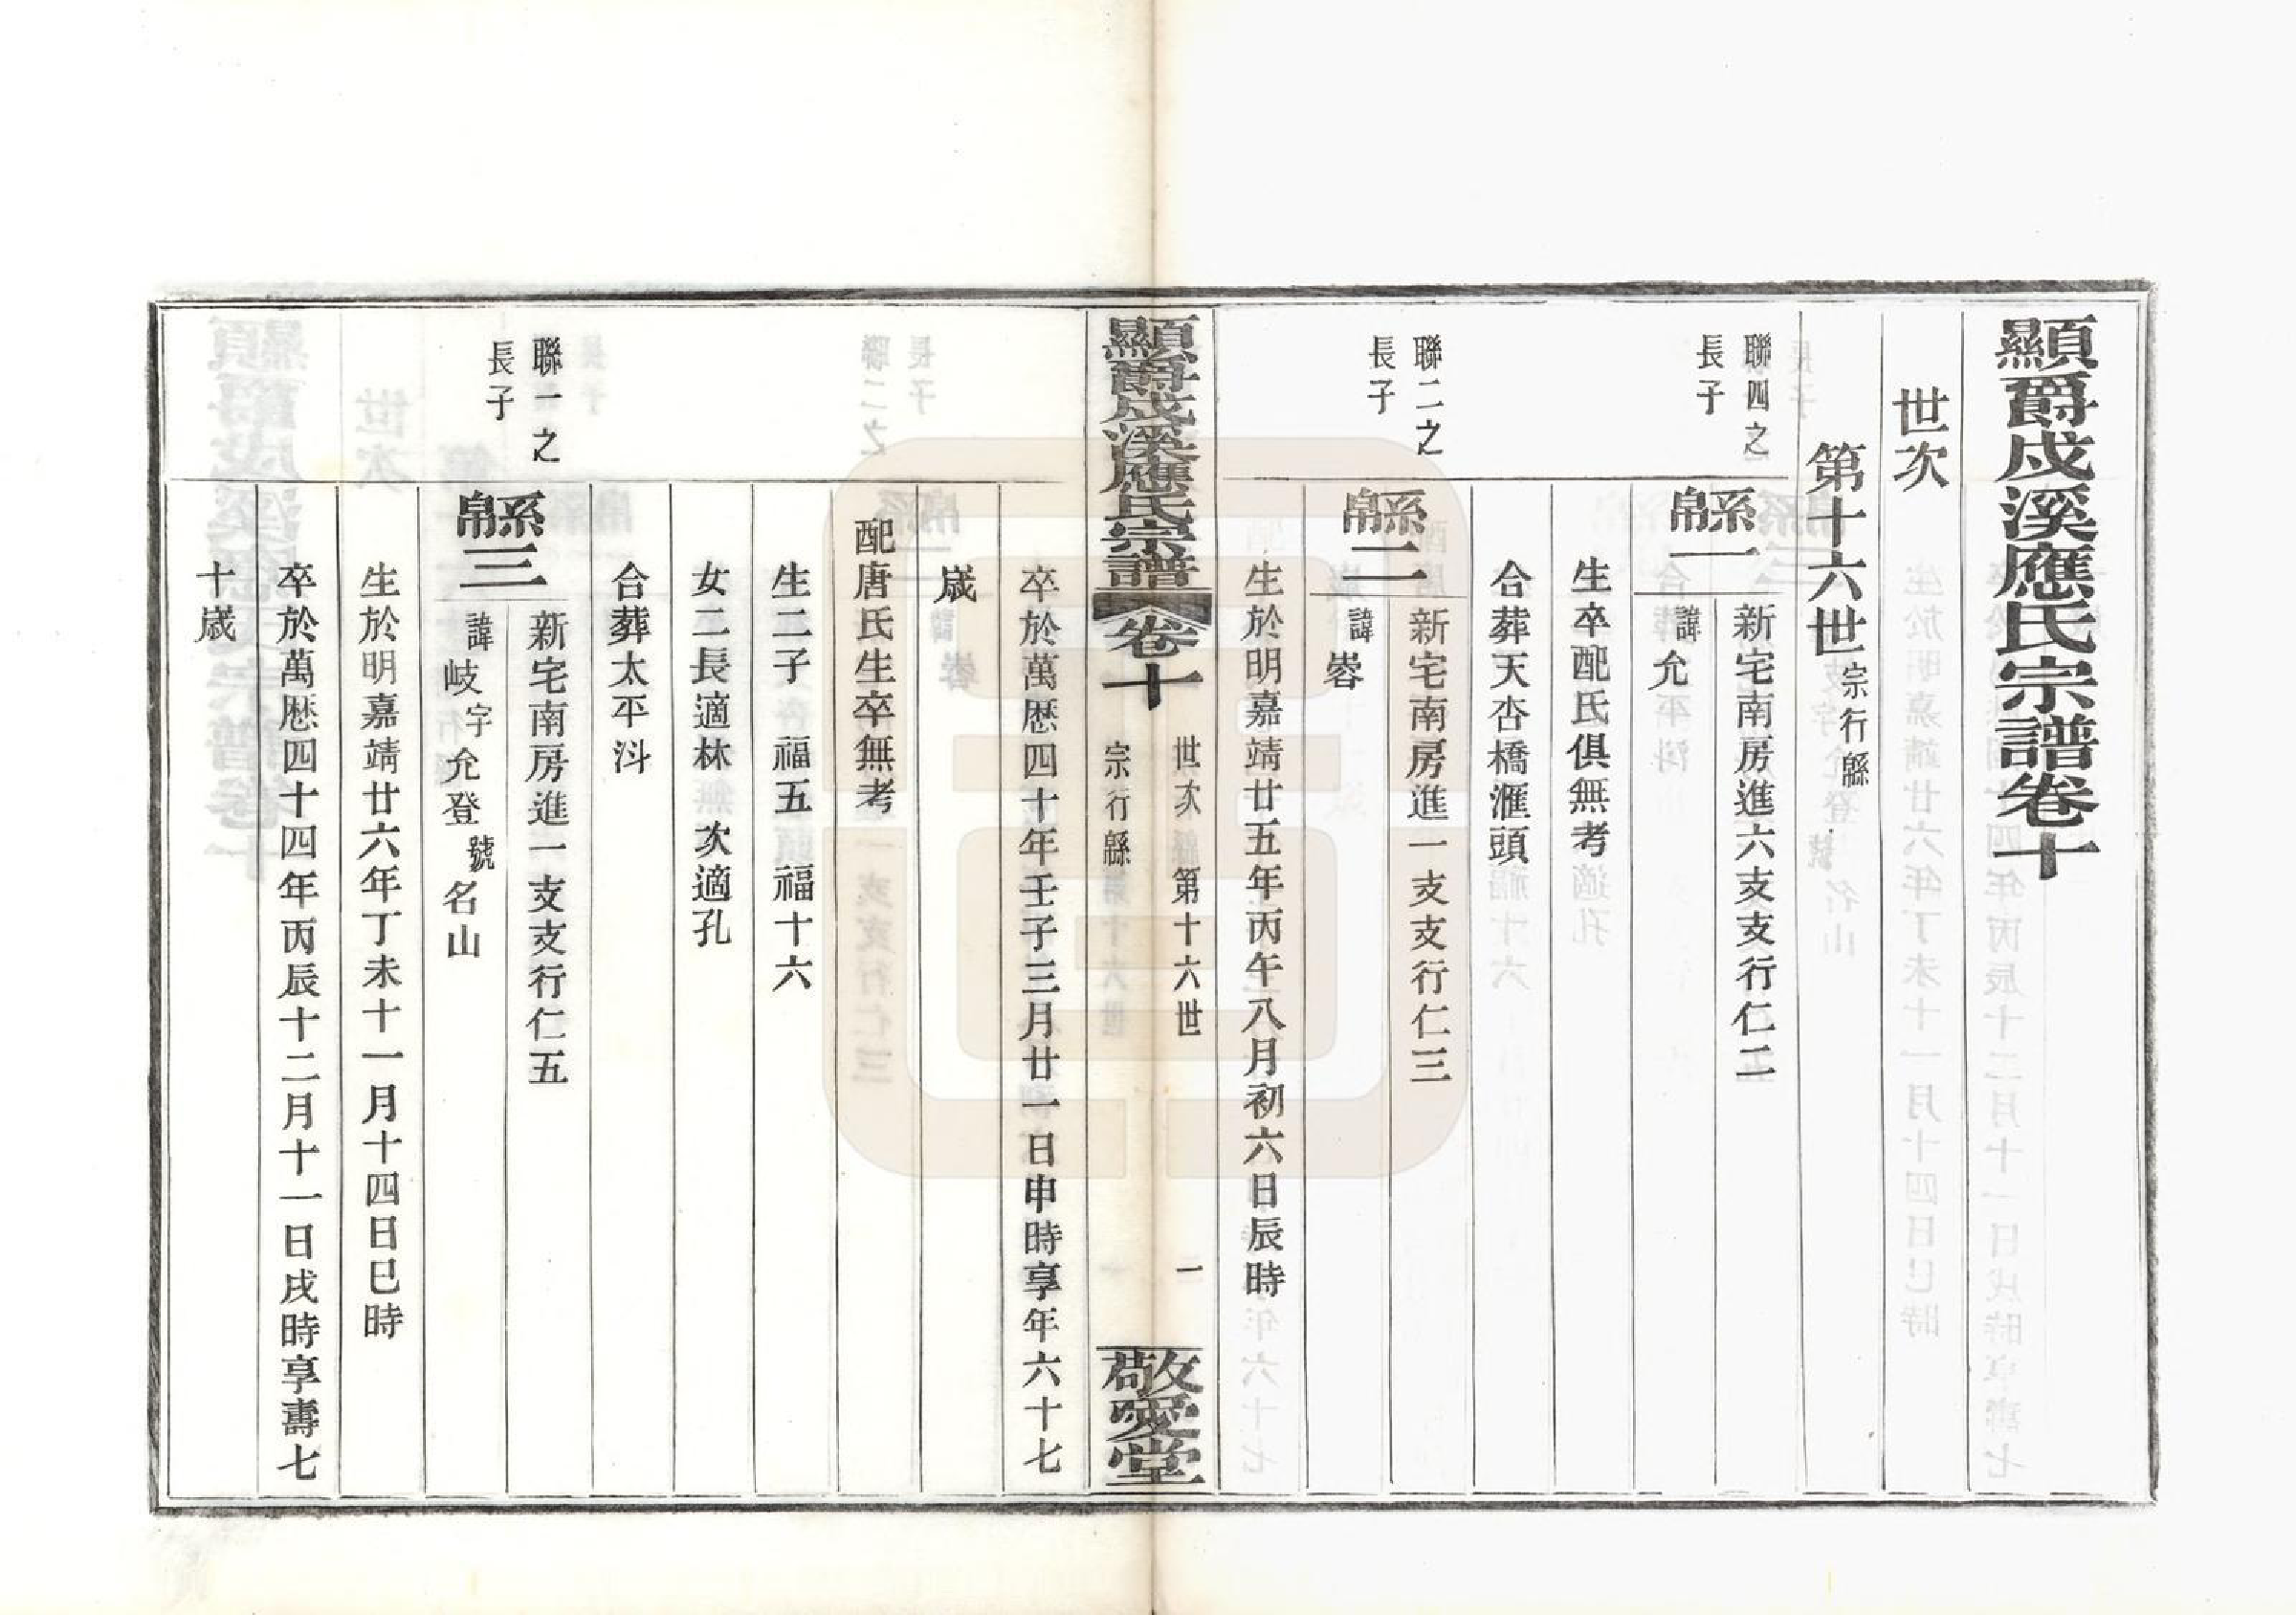 顯爵戍溪應氏宗譜卷十
世次
第十六世宗行緜
聯四之
長子
緜一
新宅南房進六支支行仁二
諱允
生卒配氏俱無考
合葬天杏橋滙頭
聯二之
長子
緜二
新宅南房進一支支行仁三
諱喾
生於明嘉靖廿五年丙午八月初六日辰時
顯爵戍溪應氏宗譜
卷十
世次
第十六世
宗行緜
一
敬愛堂
卒於萬歷四十年壬子三月廿一日申時享年六十七
歲
配唐氏生卒無考
生二子 福五 福十六
女二長適林 次適孔
合葬太平㳆
聯一之
長子
緜三
新宅南房進一支支行仁五
諱岐字允登號名山
生於明嘉靖廿六年丁未十一月十四日巳時
卒於萬歷四十四年丙辰十二月十一日戌時享壽七
十歲